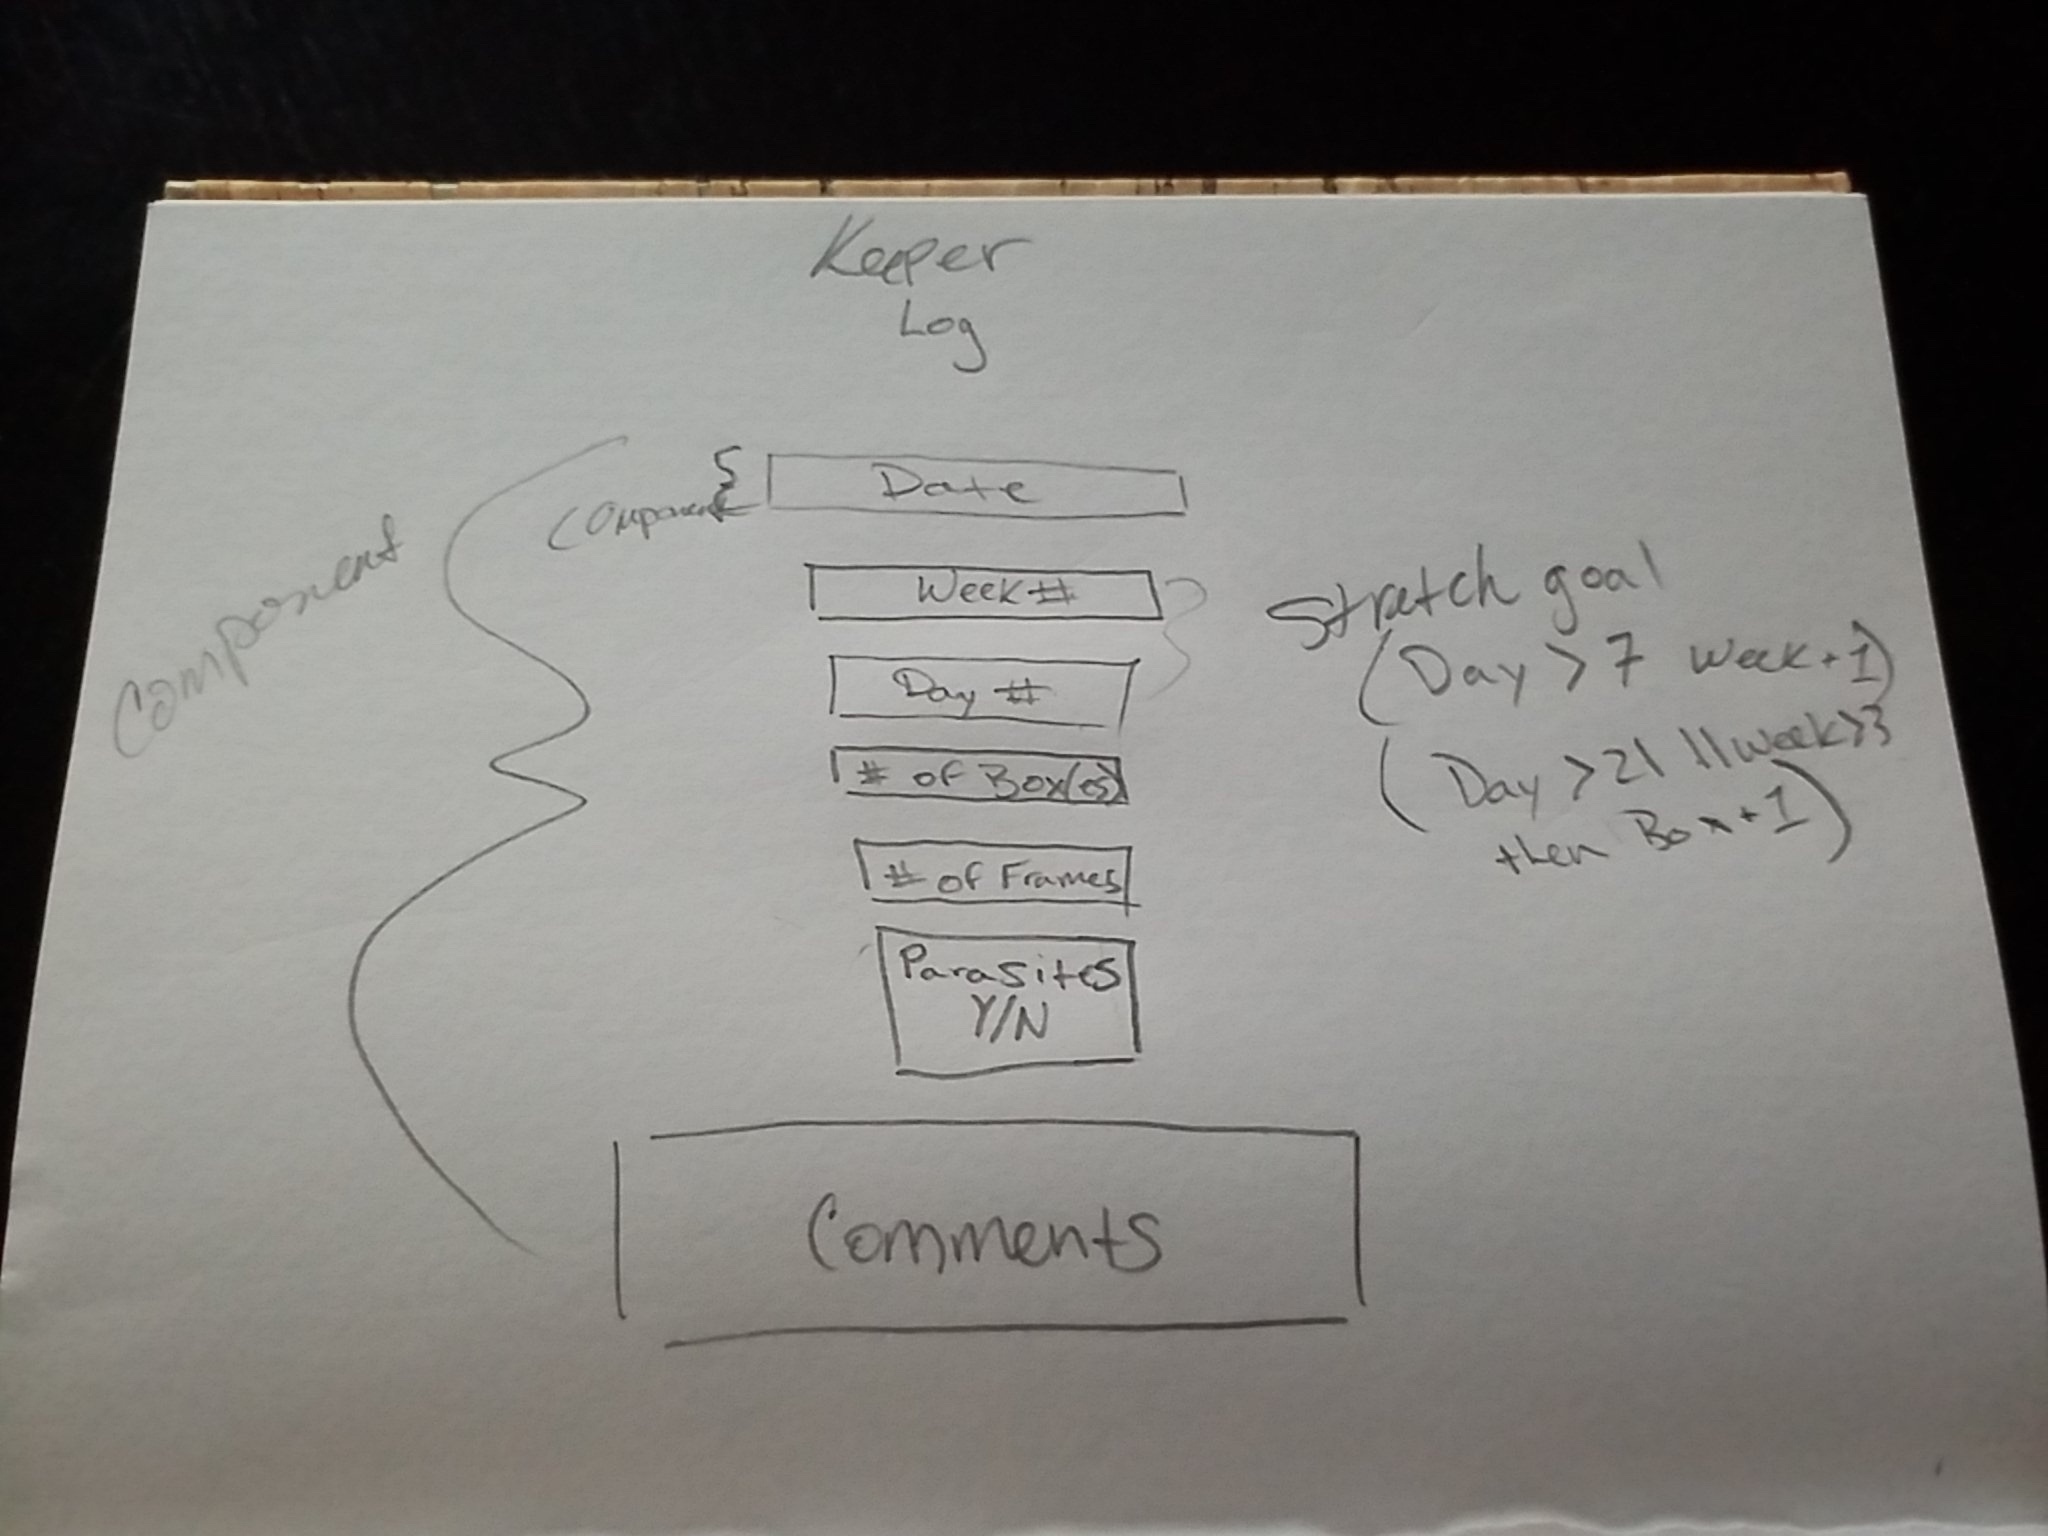 Keeper
Log
Date
Component
Component
Week #
Day #
# of Box(es)
# of Frames
Parasites
Y/N
Comments
Stretch goal
(Day > 7 week + 1)
(Day > 21 || week > 3
then Box + 1)